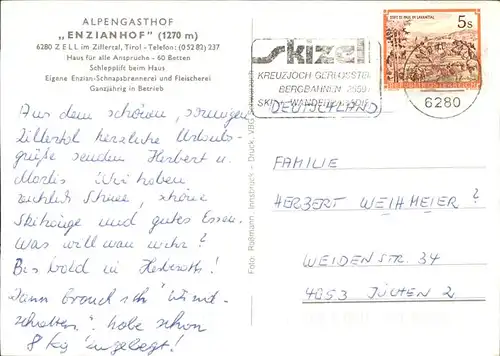 ALPENGASTHOF
„ENZIANHOF" (1270 m)
6280 ZELL im Zillertal, Tirol - Telefon: (0 52 82) 237
Haus für alle Ansprüche - 60 Betten
Schlepplift beim Haus
Eigene Enzian-Schnapsbrennerei und Fleischerei
Ganzjährig in Betrieb
Aus dem schönen, sonnigen
Zillertal herzliche Urlaubs-
grüße senden Herbert u.
Wir haben
reichlich Schnee, schöne
Skihänge und gutes Essen.
Was will man mehr?
Bis bald in
Dann brauch ich
habe schon
8 kg zugelegt!
Foto: Raßmann, Innsbruck - Druck:
skizell
KREUZJOCH GERLOSSTEIN
BERGBAHNEN
SKI WANDERN
5s
REPUBLIK ÖSTERREICH
6280
DEUTSCHLAND
FAMILIE
HERBERT WEIHMEIER
WEIDENSTR. 34
4053 JÜCHEN 2